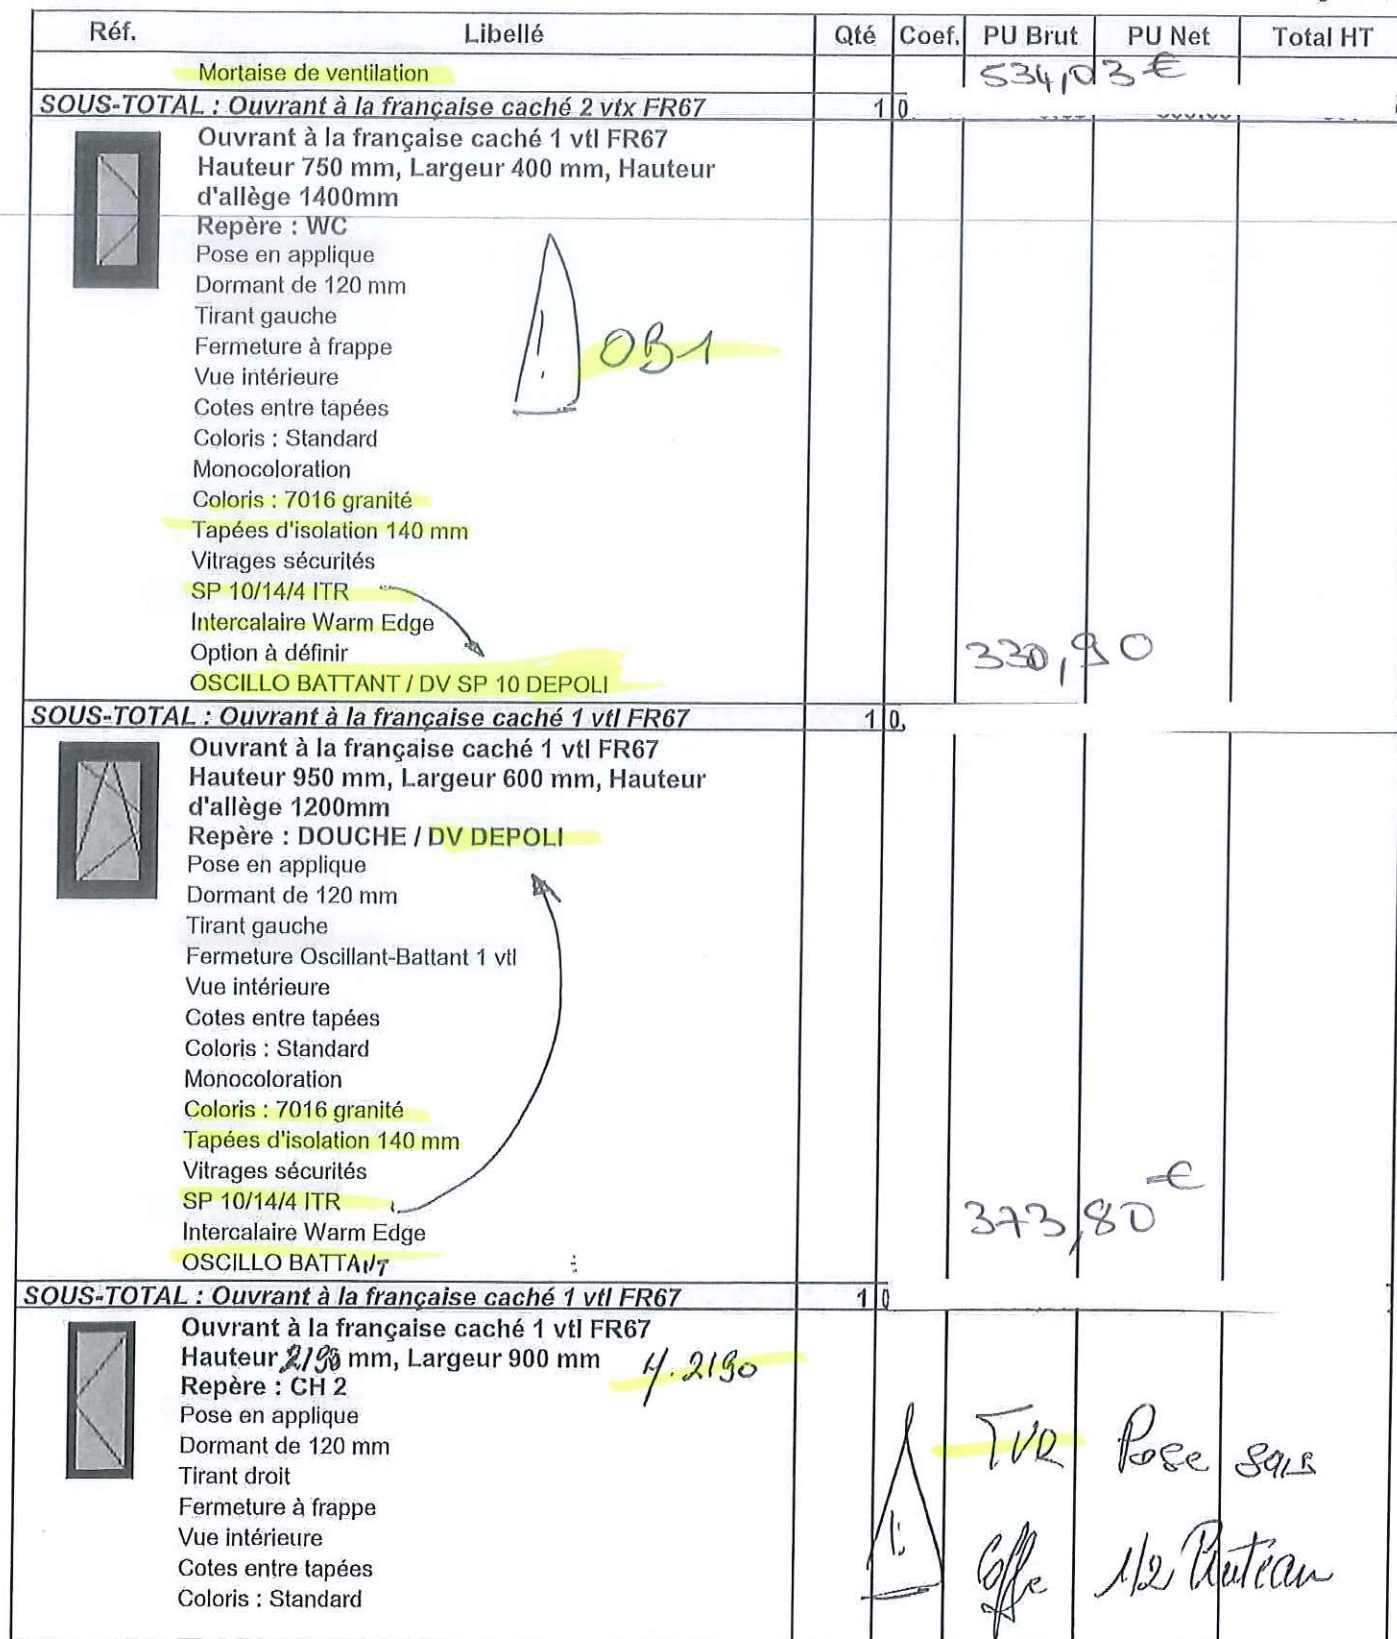 Réf. Libellé Qté Coef. PU Brut PU Net Total HT
Mortaise de ventilation 534,03 €
SOUS-TOTAL : Ouvrant à la française caché 2 vtx FR67 1 0
Ouvrant à la française caché 1 vtl FR67
Hauteur 750 mm, Largeur 400 mm, Hauteur
d'allège 1400mm
Repère : WC
Pose en applique
Dormant de 120 mm
Tirant gauche
! OB1
Fermeture à frappe
Vue intérieure
Cotes entre tapées
Coloris : Standard
Monocoloration
Coloris : 7016 granité
Tapées d'isolation 140 mm
Vitrages sécurités
SP 10/14/4 ITR
Intercalaire Warm Edge
Option à définir 330,90
OSCILLO BATTANT / DV SP 10 DEPOLI
SOUS-TOTAL : Ouvrant à la française caché 1 vtl FR67 1 0,
Ouvrant à la française caché 1 vtl FR67
Hauteur 950 mm, Largeur 600 mm, Hauteur
d'allège 1200mm
Repère : DOUCHE / DV DEPOLI
Pose en applique
Dormant de 120 mm
Tirant gauche
Fermeture Oscillant-Battant 1 vtl
Vue intérieure
Cotes entre tapées
Coloris : Standard
Monocoloration
Coloris : 7016 granité
Tapées d'isolation 140 mm
Vitrages sécurités
SP 10/14/4 ITR 373,80 €
Intercalaire Warm Edge
OSCILLO BATTANT
SOUS-TOTAL : Ouvrant à la française caché 1 vtl FR67 1 0
Ouvrant à la française caché 1 vtl FR67
Hauteur 2190 mm, Largeur 900 mm H. 2190
Repère : CH 2
Pose en applique
Dormant de 120 mm
Tirant droit
! TVR Pose sous
Fermeture à frappe
Vue intérieure
Coffre 1/2
Cotes entre tapées
Coloris : Standard